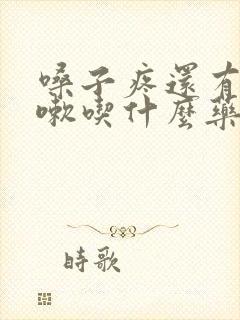 嗓子疼還有
嗽喫什麼藥
時歌